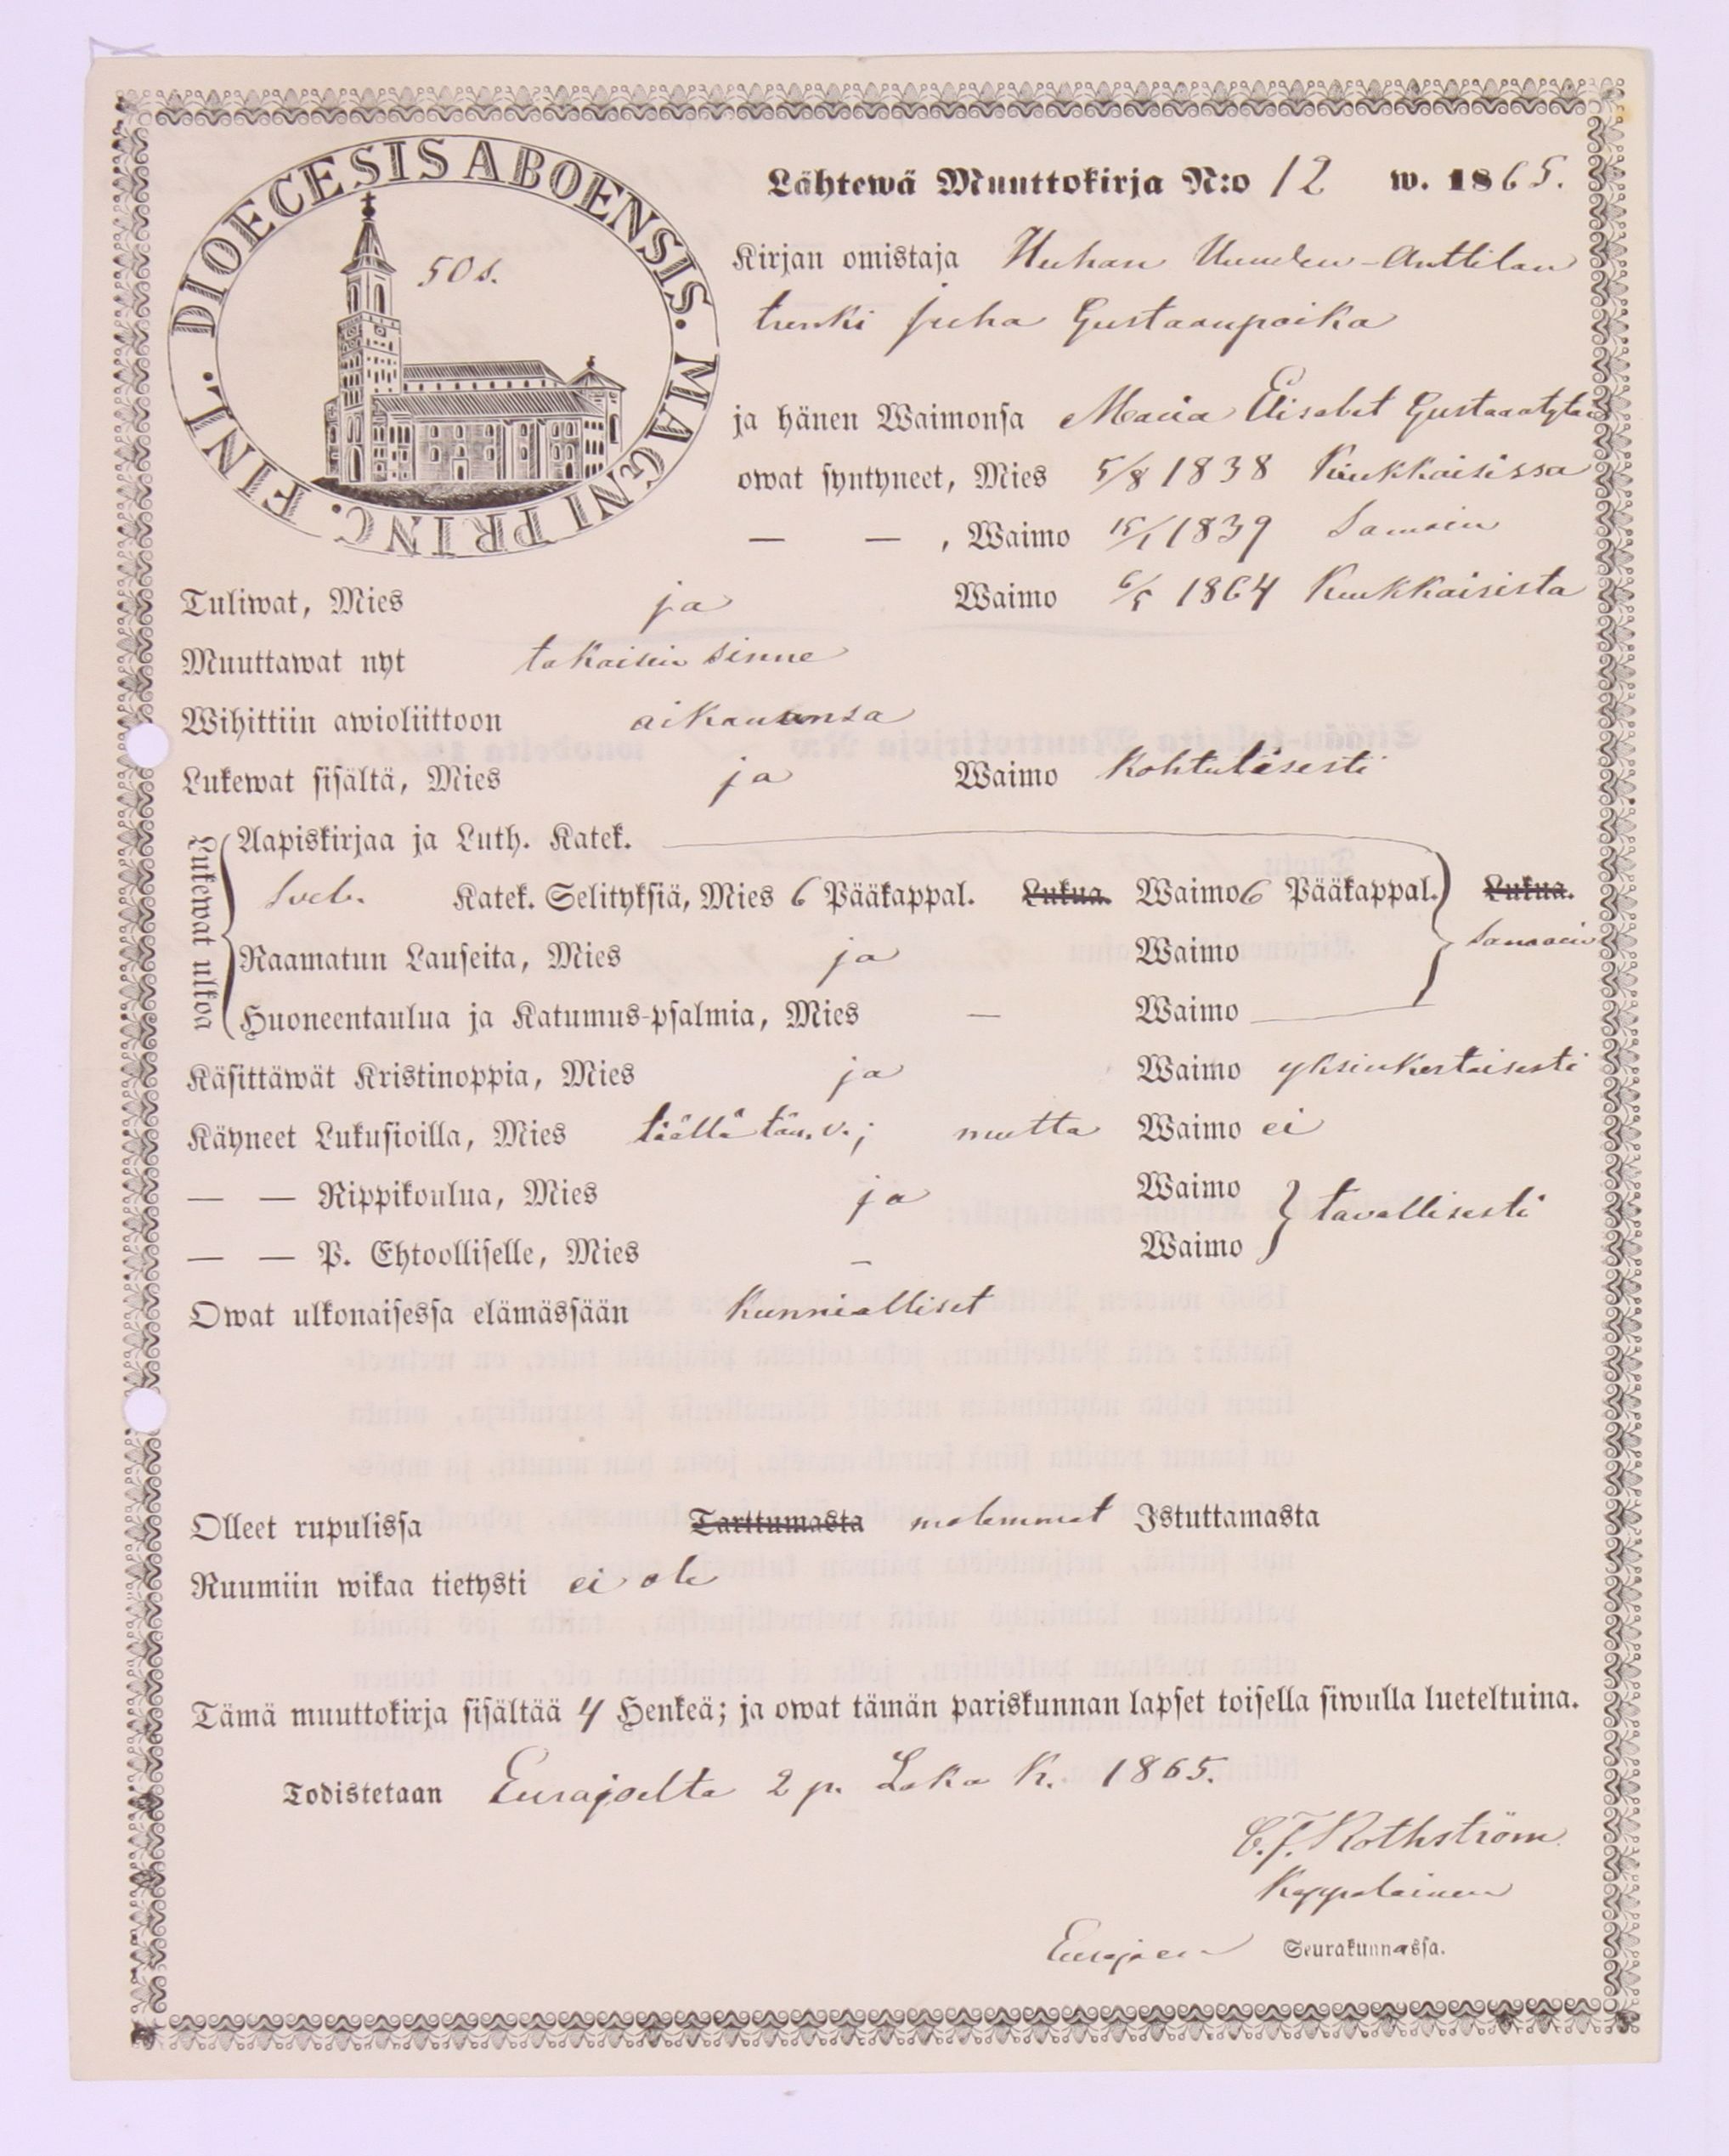 DIOECESIS ABOENSIS. MAGNI PRINC. FINL.
50 s.
Lähtewä Muuttokirja N:o 12 w. 1865.
Kirjan omistaja Huhan Uuden-Anttilan
trenki Juha Gustaanpoika
ja hänen Waimonsa Maria Elisabet Gustaantytär
owat syntyneet, Mies 5/8 1838 Kiukkaisissa
— — , Waimo 15/1 1839 Samoin
Tuliwat, Mies ja Waimo 6/5 1864 Kiukkaisista
Muuttawat nyt takaisin sinne
Wihittiin awioliittoon aikanansa
Lukewat sisältä, Mies ja Waimo Kohtulisesti
Lukewat ulkoa
Aapiskirjaa ja Luth. Katek.
Sveb. Katek. Selityksiä, Mies 6 Pääkappal. Lukua. Waimo 6 Pääkappal. Lukua.
samoin
Raamatun Lauseita, Mies ja Waimo
Huoneentaulua ja Katumus-psalmia, Mies — Waimo
Käsittäwät Kristinoppia, Mies ja Waimo yksinkertaisesti
Käyneet Lukusioilla, Mies täällä tän. v.; mutta Waimo ei
— — Rippikoulua, Mies ja Waimo tavallisesti
— — P. Ehtoolliselle, Mies – Waimo
Owat ulkonaisessa elämässään Kunnialliset
Olleet rupulissa Tarttumasta molemmat Istuttamasta
Ruumiin wikaa tietysti ei ole
Tämä muuttokirja sisältää 4 Henkeä; ja owat tämän pariskunnan lapset toisella siwulla lueteltuina.
Todistetaan Eurajoelta 2 p. Loka K. 1865.
C. F. Rothström
Kappalainen
Eurajoen Seurakunnassa.